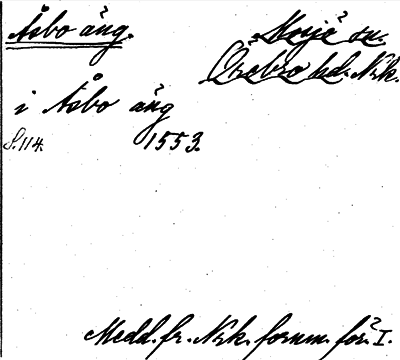 Åsbo äng.
Mosjö sn.
Örebro hd. Nrk.
i Åsbo äng
S. 114 1553.
Medd. fr. Nrk. fornm. för. I.